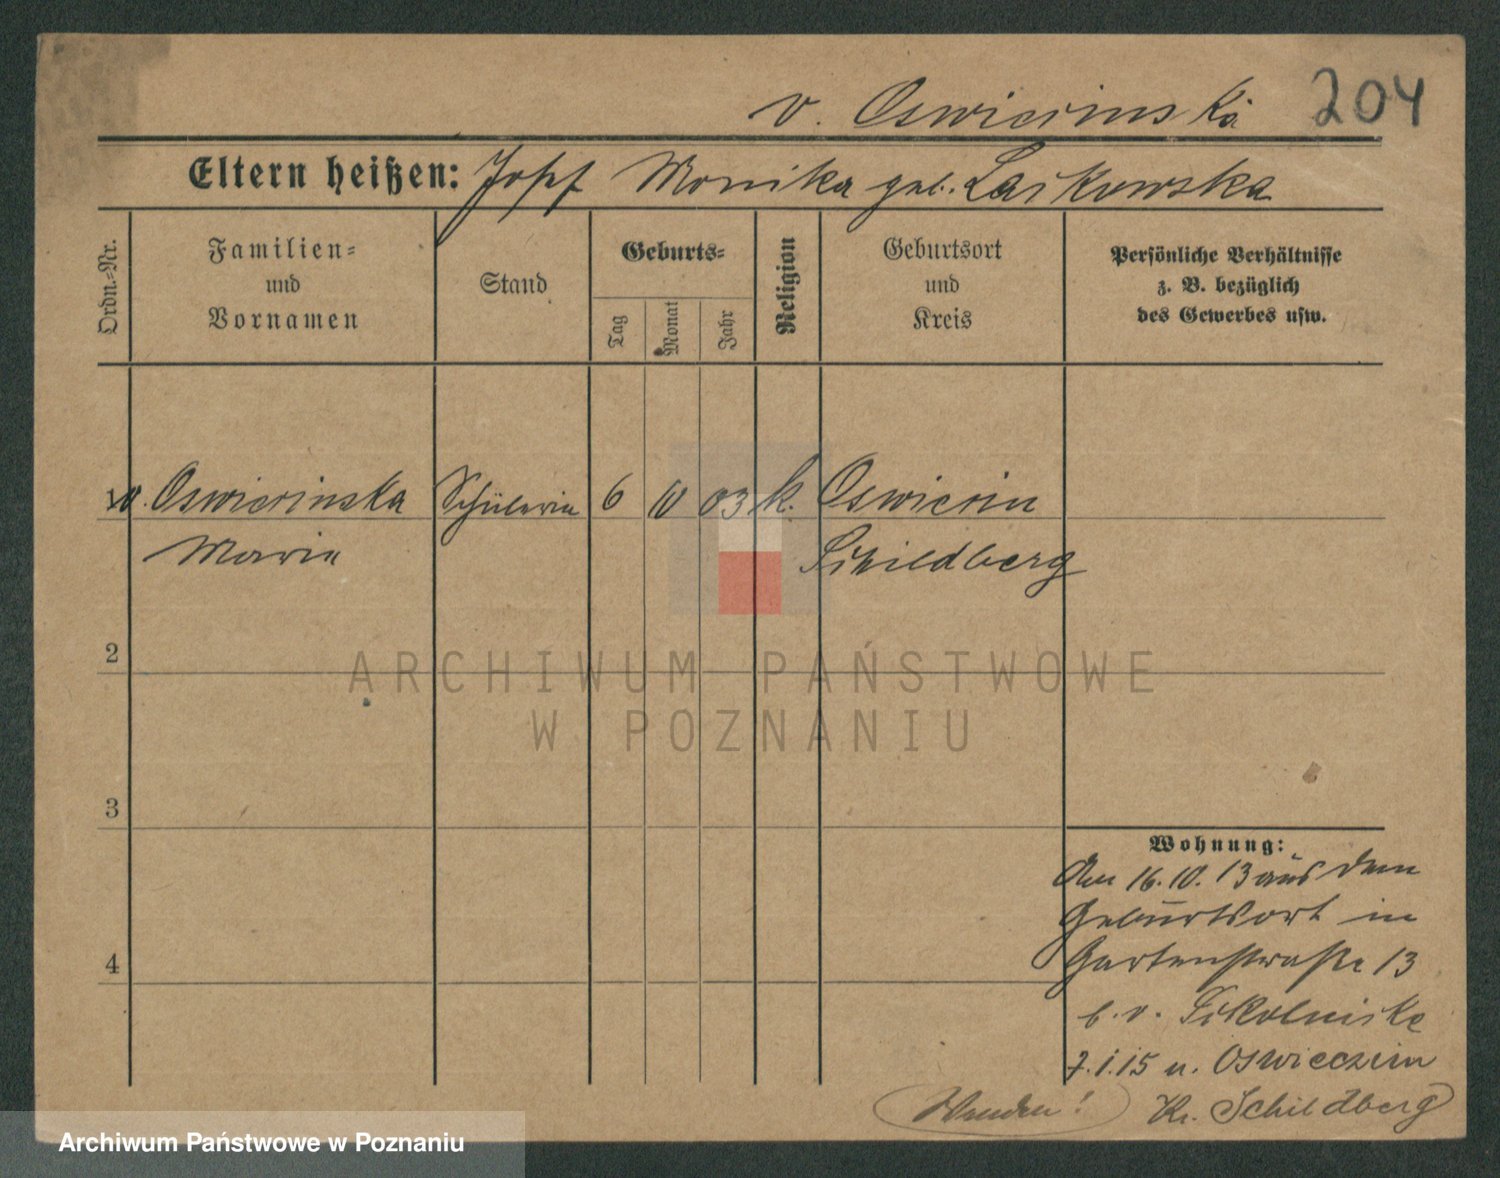 v. Oswiecinska 204
Eltern heißen: Josef Monika geb. Laskowska
Ordn.-Nr.
Familien-
und
Vornamen
Stand
Geburts-
Tag
Monat
Jahr
Religion
Geburtsort
und
Kreis
Persönliche Verhältnisse
z. B. bezüglich
des Gewerbes usw.
1 v. Oswiecinska Schülerin 6 10 03 k. Oswiecin
Maria Schildberg
2
ARCHIWUM PAŃSTWOWE
W POZNANIU
3
Wohnung:
Am 16.10.13 aus dem
Geburtsort in
4
Gartenstraße 13
b. v.
7.1.15 n. Oswieczin
Wenden! Kr. Schildberg
Archiwum Państwowe w Poznaniu